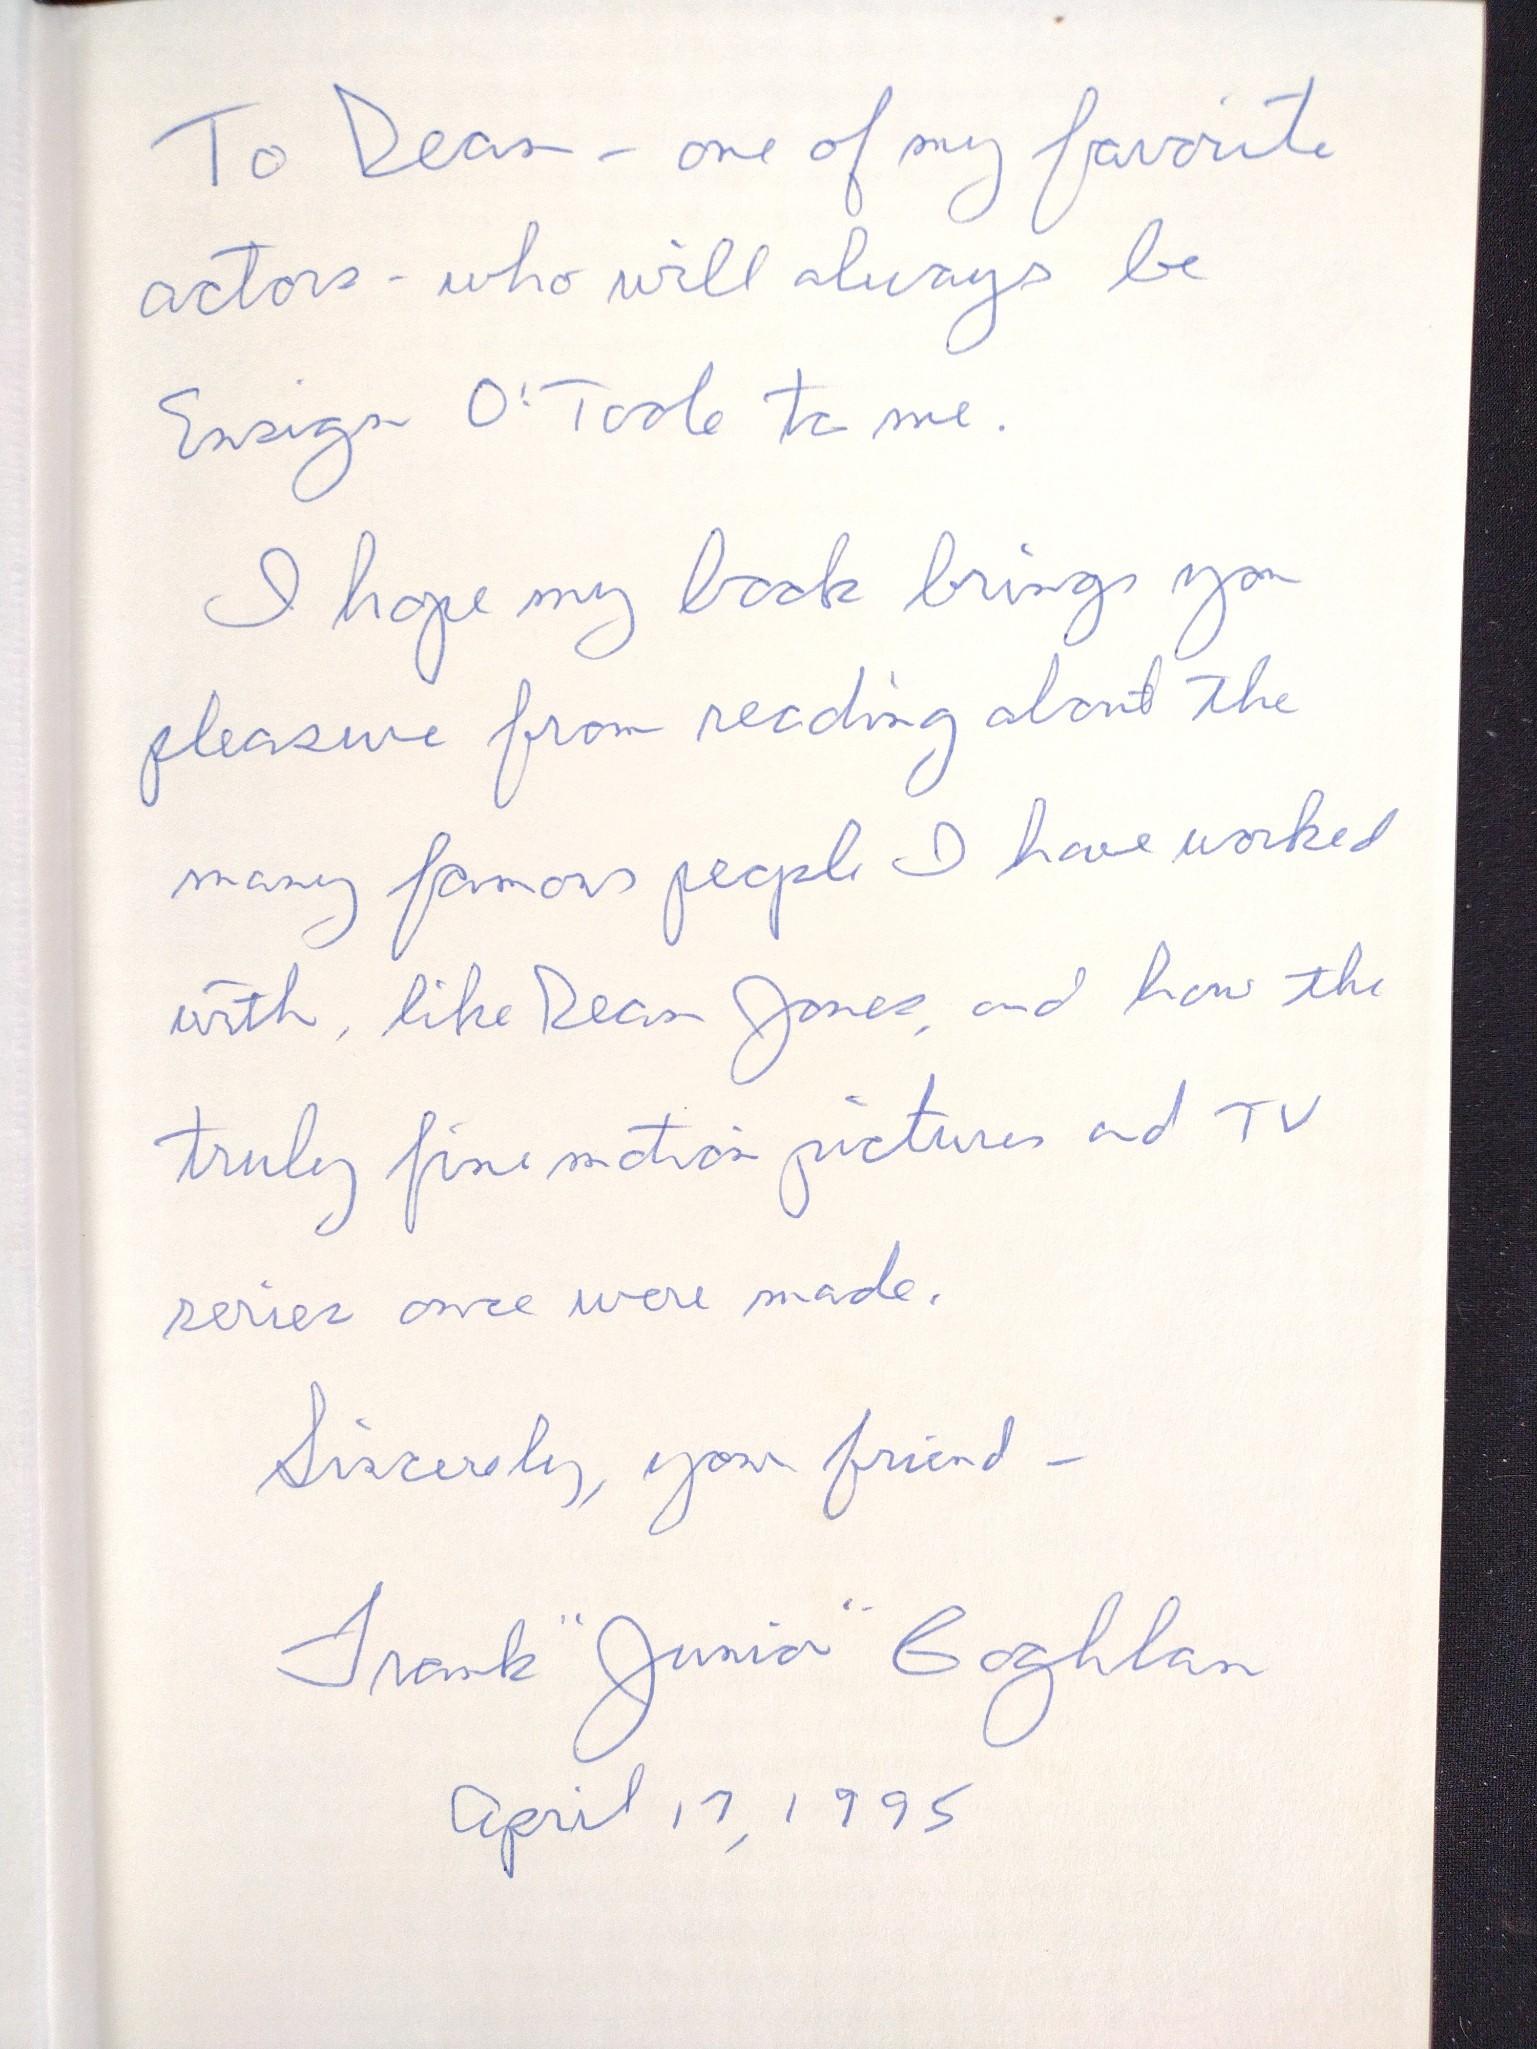 To Dean - one of my favorite
actors - who will always be
Ensign O'Toole to me.
I hope my book brings you
pleasure from reading about the
many famous people I have worked
with, like Dean Jones, and how the
truly fine motion pictures and TV
series once were made.
Sincerely, your friend -
Frank "Junior" Coghlan
April 17, 1995